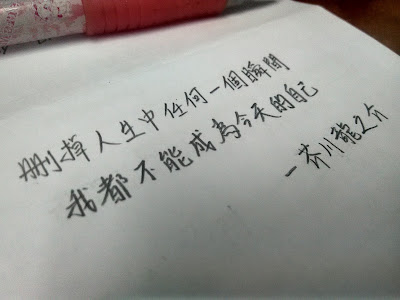 刪掉人生中任何一個瞬間
我都不能成為今天的自己
－芥川龍之介